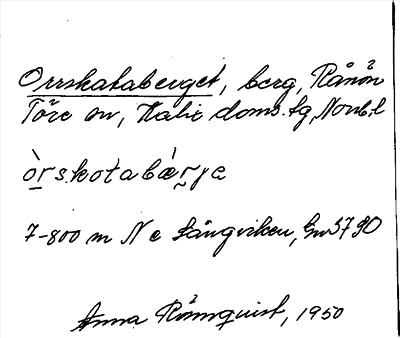 Orrskataberget, berg, Rånön
Töre sn, Kalix doms. tg, Norrb. l
òrskotabæ̀rje
7-800 m N e Långviken, Gm 3790
Anna Rönnquist, 1950